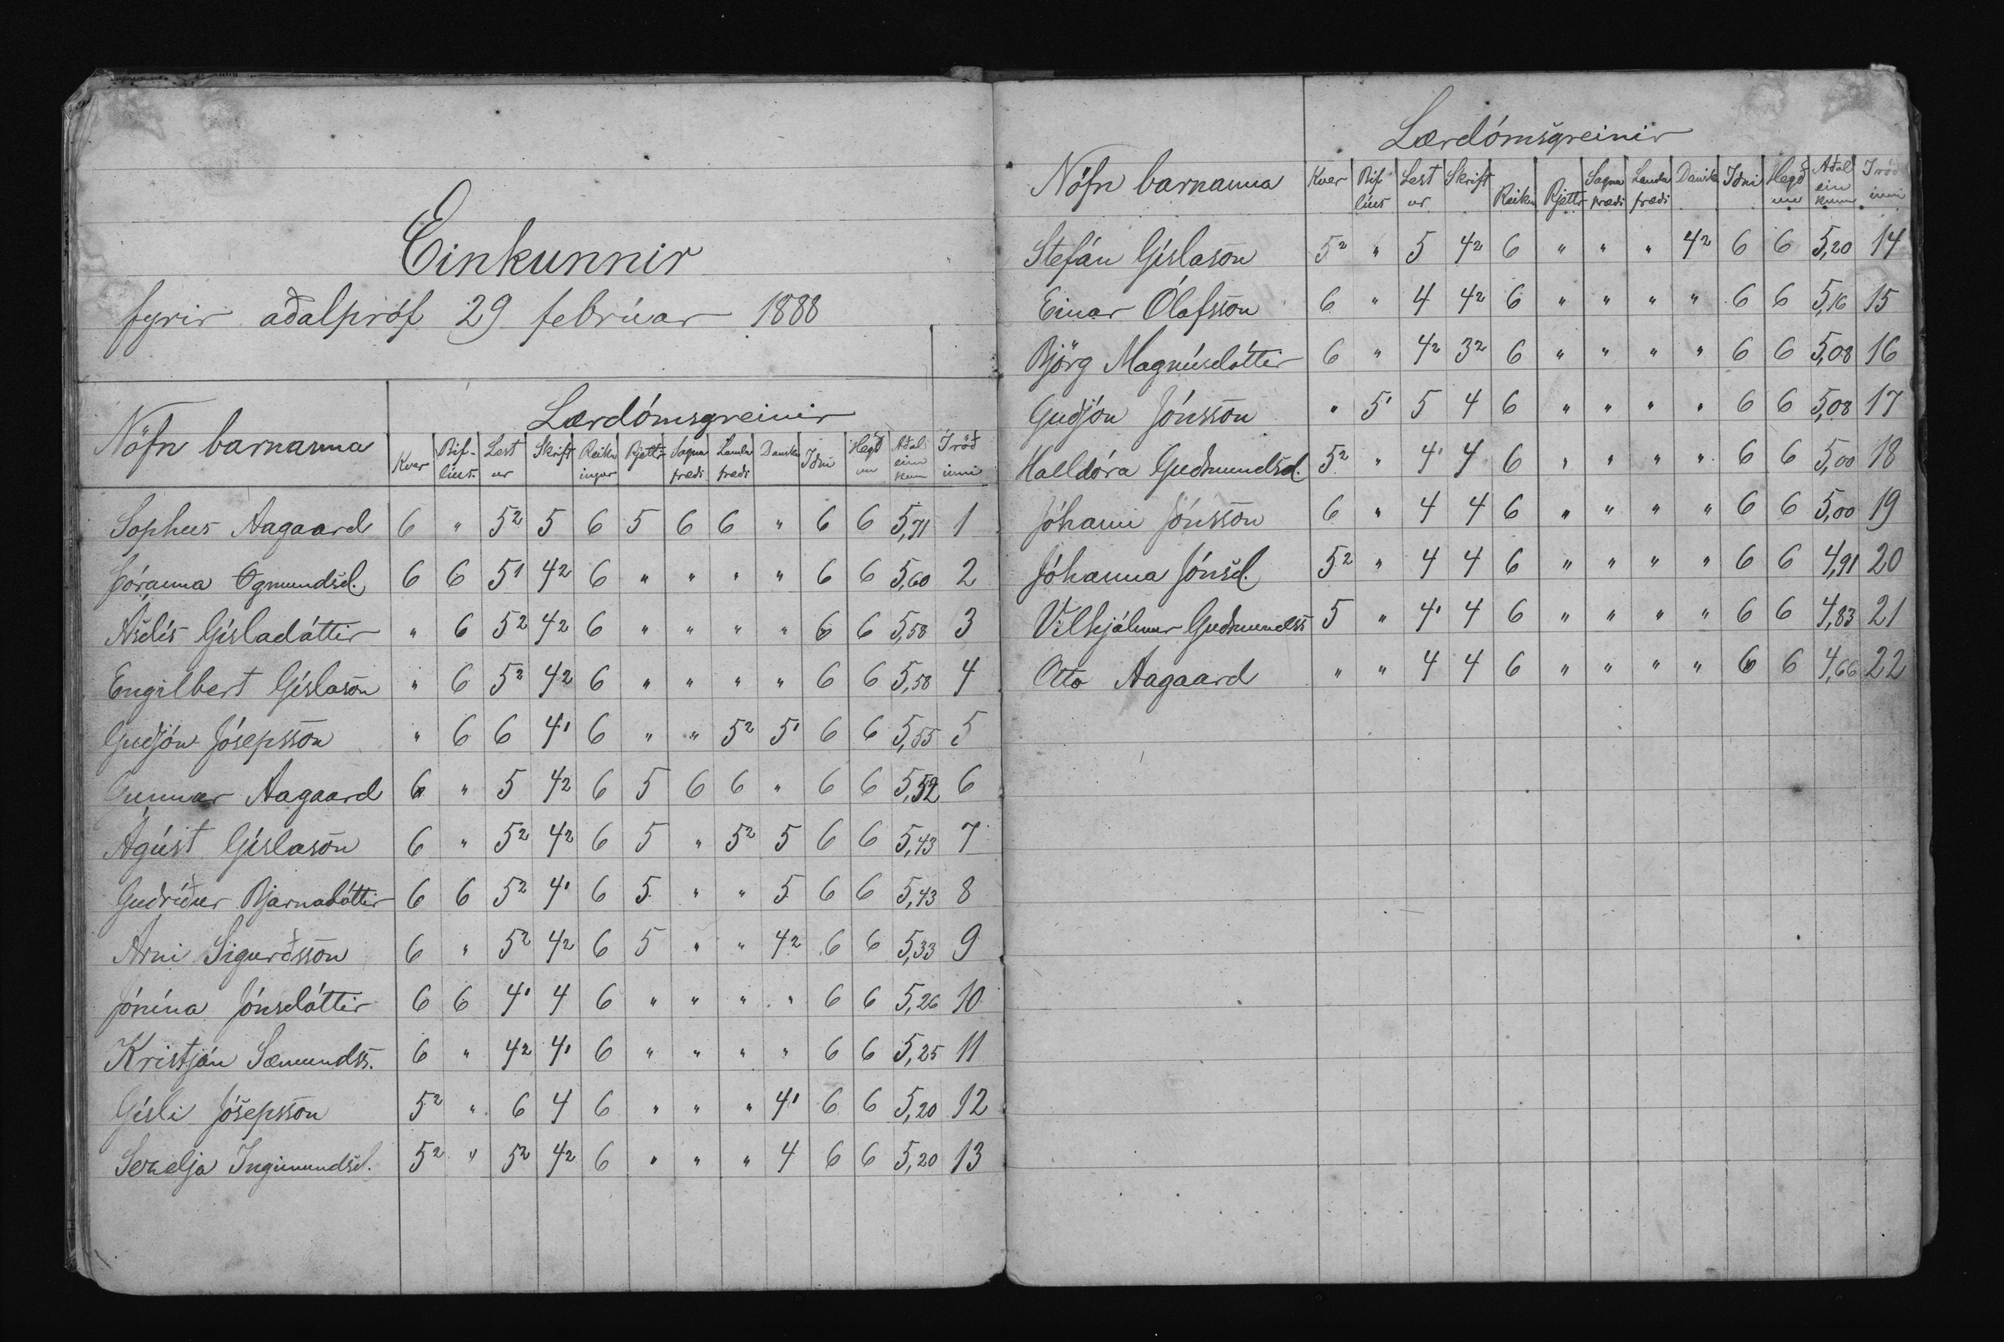 Einkunnir
fyrir aðalpróf 29 febrúar 1888
Lærdómsgreinir
Nöfn barnanna Kver Biflíus. Lestur Skrift Reikningur Rjettr. Sagnafræði Landafræði Danska Iðni Hegðun Aðaleinkunn Í röðinni
Sophus Aagaard 6 " 5² 5 6 5 6 6 " 6 6 5,71 1
Þóranna Ögmundsd. 6 6 5¹ 4² 6 " " " " 6 6 5,60 2
Ásdís Gísladóttir " 6 5² 4² 6 " " " " 6 6 5,58 3
Engilbert Gíslason " 6 5² 4² 6 " " " " 6 6 5,58 4
Guðjón Jósepsson " 6 6 4¹ 6 " " 5² 5¹ 6 6 5,55 5
Gunnar Aagaard 6 " 5 4² 6 5 6 6 " 6 6 5,52 6
Ágúst Gíslason 6 " 5² 4² 6 5 " 5² 5 6 6 5,43 7
Guðríður Bjarnadóttir 6 6 5² 4¹ 6 5 " " 5 6 6 5,43 8
Árni Sigurðsson 6 " 5² 4² 6 5 " " 4² 6 6 5,33 9
Jónína Jónsdóttir 6 6 4¹ 4 6 " " " " 6 6 5,26 10
Kristján Sæmundss. 6 " 4² 4¹ 6 " " " " 6 6 5,25 11
Gísli Jósepsson 5² " 6 4 6 " " " 4¹ 6 6 5,20 12
Ingimundsd. 5² " 5² 4² 6 " " " 4 6 6 5,20 13
Lærdómsgreinir
Nöfn barnanna Kver Biflíus Lestur Skrift Reikn Rjettr Sagnafræði Landafræði Danska Iðni Hegðun Aðaleinkunn Í röðinni
Stefán Gíslason 5² " 5 4² 6 " " " 4² 6 6 5,20 14
Einar Ólafsson 6 " 4 4² 6 " " " " 6 6 5,16 15
Björg Magnúsdóttir 6 " 4² 3² 6 " " " " 6 6 5,08 16
Guðjón Jónsson " 5¹ 5 4 6 " " " " 6 6 5,08 17
Halldóra Guðmundsd. 5² " 4¹ 4 6 " " " " 6 6 5,00 18
Jóhann Jónsson 6 " 4 4 6 " " " " 6 6 5,00 19
Jóhanna Jónsd. 5² " 4 4 6 " " " " 6 6 4,91 20
Vilhjálmur Guðmundss 5 " 4¹ 4 6 " " " " 6 6 4,83 21
Otto Aagaard " " 4 4 6 " " " " 6 6 4,66 22